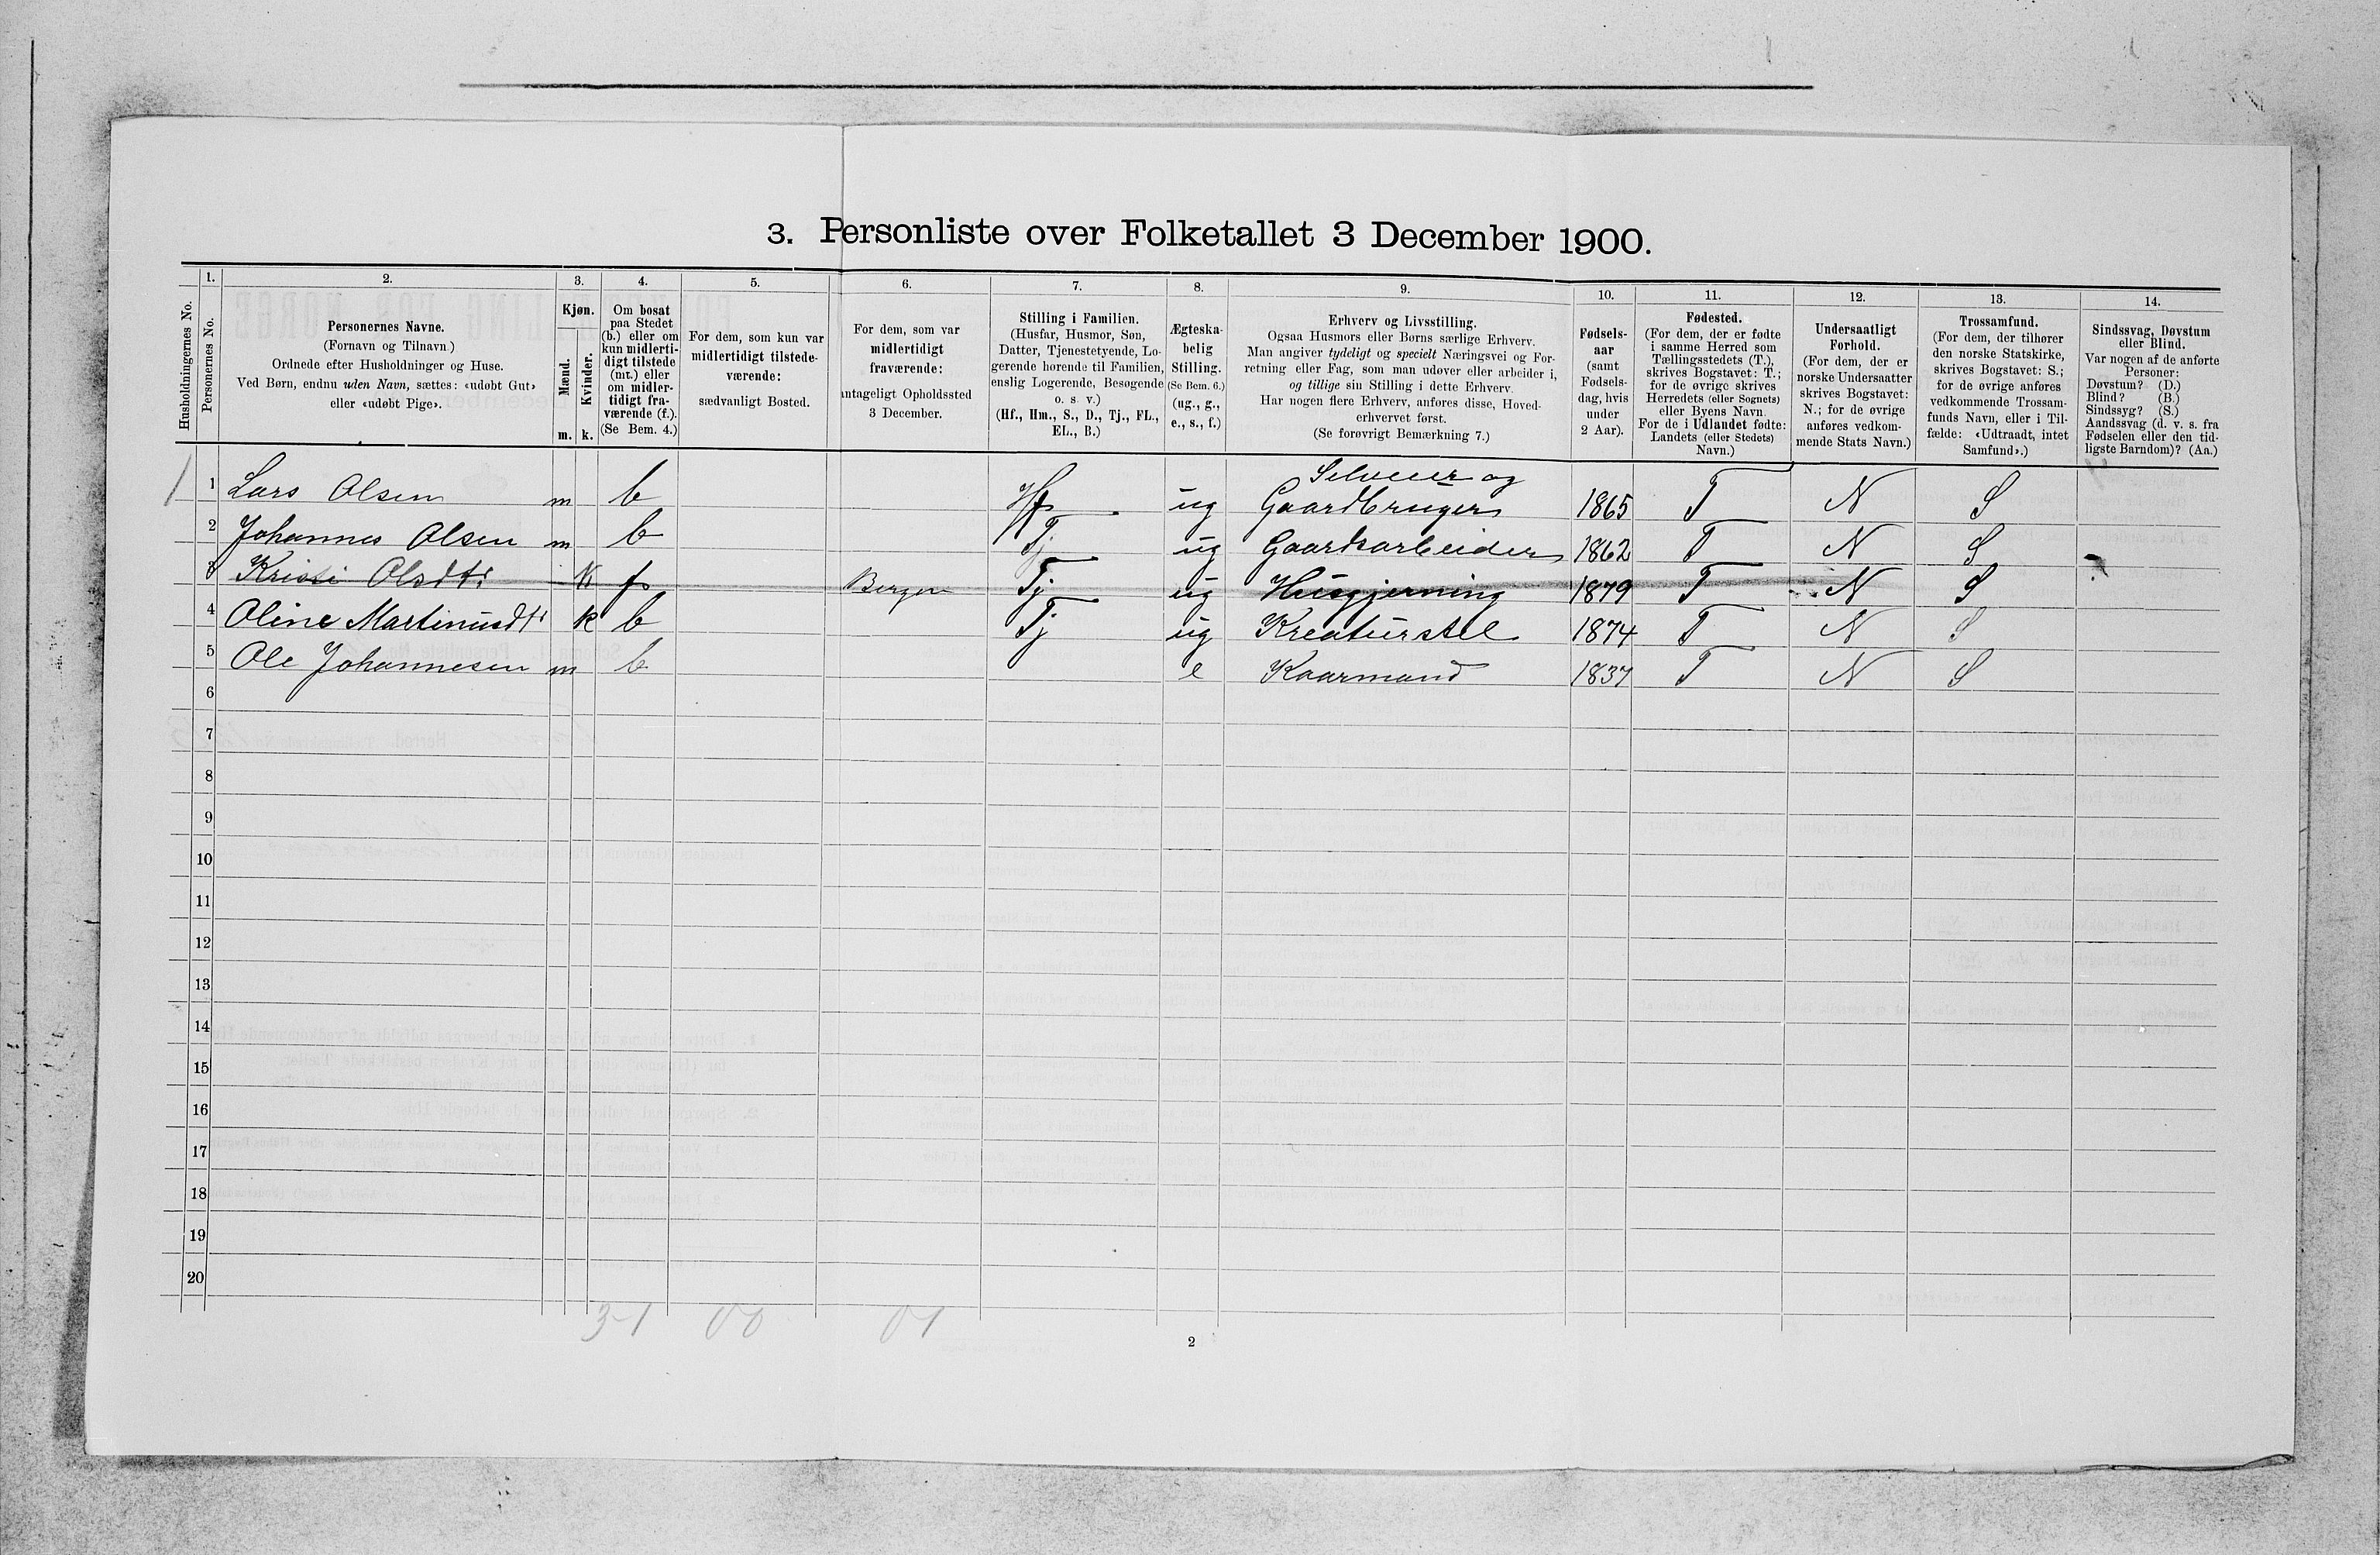 3. Personliste over Folketallet 3 December 1900.
1. 2. 3. 4. 5. 6. 7. 8. 9. 10. 11. 12. 13. 14.
Husholdningernes No.
Personernes No.
Personernes Navne.
(Fornavn og Tilnavn.)
Ordnede efter Husholdninger og Huse.
Ved Børn, endnu uden Navn, sættes: «udøbt Gut»
eller «udøbt Pige».
Kjøn.
Mænd.
Kvinder.
m. k.
Om bosat
paa Stedet
(b.) eller om
kun midlerti-
digt tilstede
(mt.) eller
om midler-
tidigt fra-
værende (f.).
(Se Bem. 4.)
For dem, som kun var
midlertidigt tilstede-
værende:
sædvanligt Bosted.
For dem, som var
midlertidigt
fraværende:
antageligt Opholdssted
3 December.
Stilling i Familien.
(Husfar, Husmor, Søn,
Datter, Tjenestetyende, Lo-
gerende hørende til Familien,
enslig Logerende, Besøgende
o. s. v.)
(Hf., Hm., S., D., Tj., FL.,
EL., B.)
Ægteska-
belig
Stilling.
(Se Bem. 6.)
(ug., g.,
e., s., f.)
Erhverv og Livsstilling.
Ogsaa Husmors eller Børns særlige Erhverv.
Man angiver tydeligt og specielt Næringsvei og For-
retning eller Fag, som man udøver eller arbeider i,
og tillige sin Stilling i dette Erhverv.
Har nogen flere Erhverv, anføres disse, Hoved-
erhvervet først.
(Se forøvrigt Bemærkning 7.)
Fødsels-
aar
(samt
Fødsels-
dag, hvis
under
2 Aar).
Fødested.
(For dem, der er fødte
i samme Herred som
Tællingsstedets (T.),
skrives Bogstavet: T.;
for de øvrige skrives
Herredets (eller Sognets)
eller Byens Navn.
For de i Udlandet fødte:
Landets (eller Stedets)
Navn.)
Undersaatligt
Forhold.
(For dem, der er
norske Undersaatter
skrives Bogstavet:
N.; for de øvrige
anføres vedkom-
mende Stats Navn.)
Trossamfund.
(For dem, der tilhører
den norske Statskirke,
skrives Bogstavet: S.;
for de øvrige anføres
vedkommende Trossam-
funds Navn, eller i Til-
fælde: «Udtraadt, intet
Samfund».)
Sindssvag, Døvstum
eller Blind.
Var nogen af de anførte
Personer:
Døvstum? (D.)
Blind? (B.)
Sindssyg? (S.)
Aandssvag (d. v. s. fra
Fødselen eller den tid-
ligste Barndom)? (Aa.)
Selveier og
1 1 Lars Olsen m b Hf ug Gaardbruger 1865 T N S
2 Johannes Olsen m b Tj ug Gaardsarbeider 1862 T N S
3 Kristi Olsdtr k f Bergen Tj ug Husgjerning 1879 T N S
4 Oline Martinusdtr k b Tj ug Kreaturstel 1874 T N S
5 Ole Johannesen m b e Kaarmand 1837 T N S
6
7
8
9
10
11
12
13
14
15
16
17
18
19
20
3-1 00 01
2